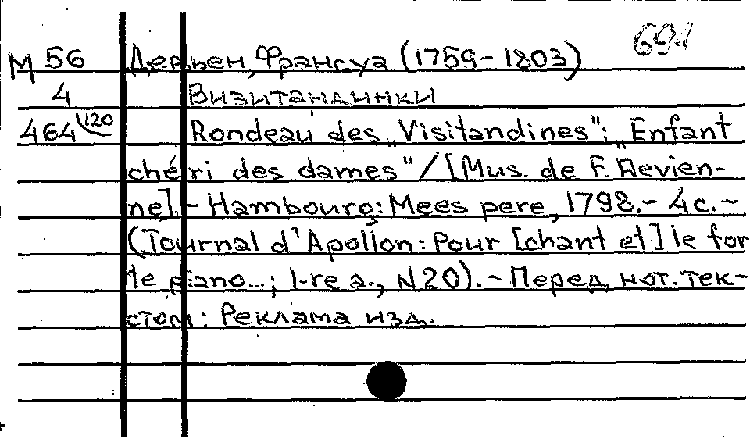 691
М 56 Девьен, Франсуа (1759-1803)
4 Визитандинки
464/120 Rondeau des „Visitandines": „Enfant
chéri des dames" / [Mus. de F. Devien-
ne]. - Hambourg: Mees pere, 1798. - 4 с. -
(Journal d'Apollon: Pour [chant et] le for
te piano...; 1-re a., N20). - Перед нот. тек-
стом: Реклама изд.